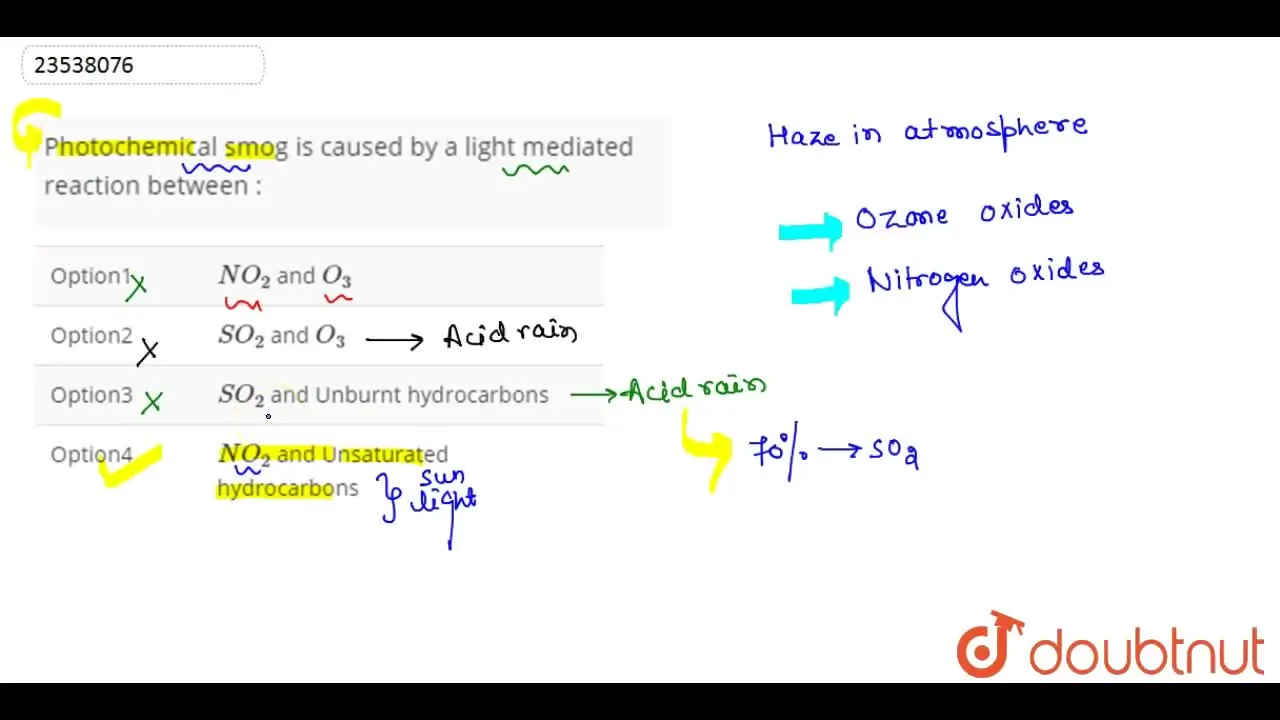 23538076
Photochemical smog is caused by a light mediated
reaction between :
Option1 X NO₂ and O₃
Option2 X SO₂ and O₃ → Acid rain
Option3 X SO₂ and Unburnt hydrocarbons → Acid rain
Option4 NO₂ and Unsaturated
hydrocarbons } sun
light
Haze in atmosphere
Ozone oxides
Nitrogen oxides
70% → SO₂
doubtnut